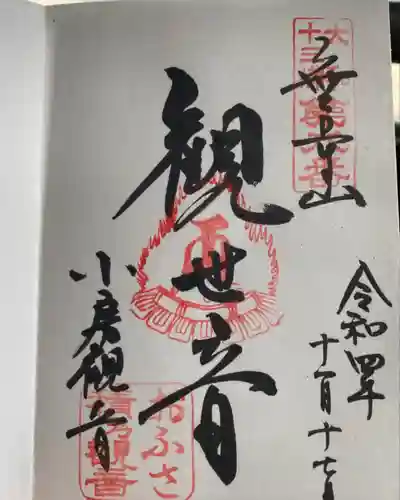 無量山
観世音
小房観音
おふさ
観音
令和四年
十一月十七日